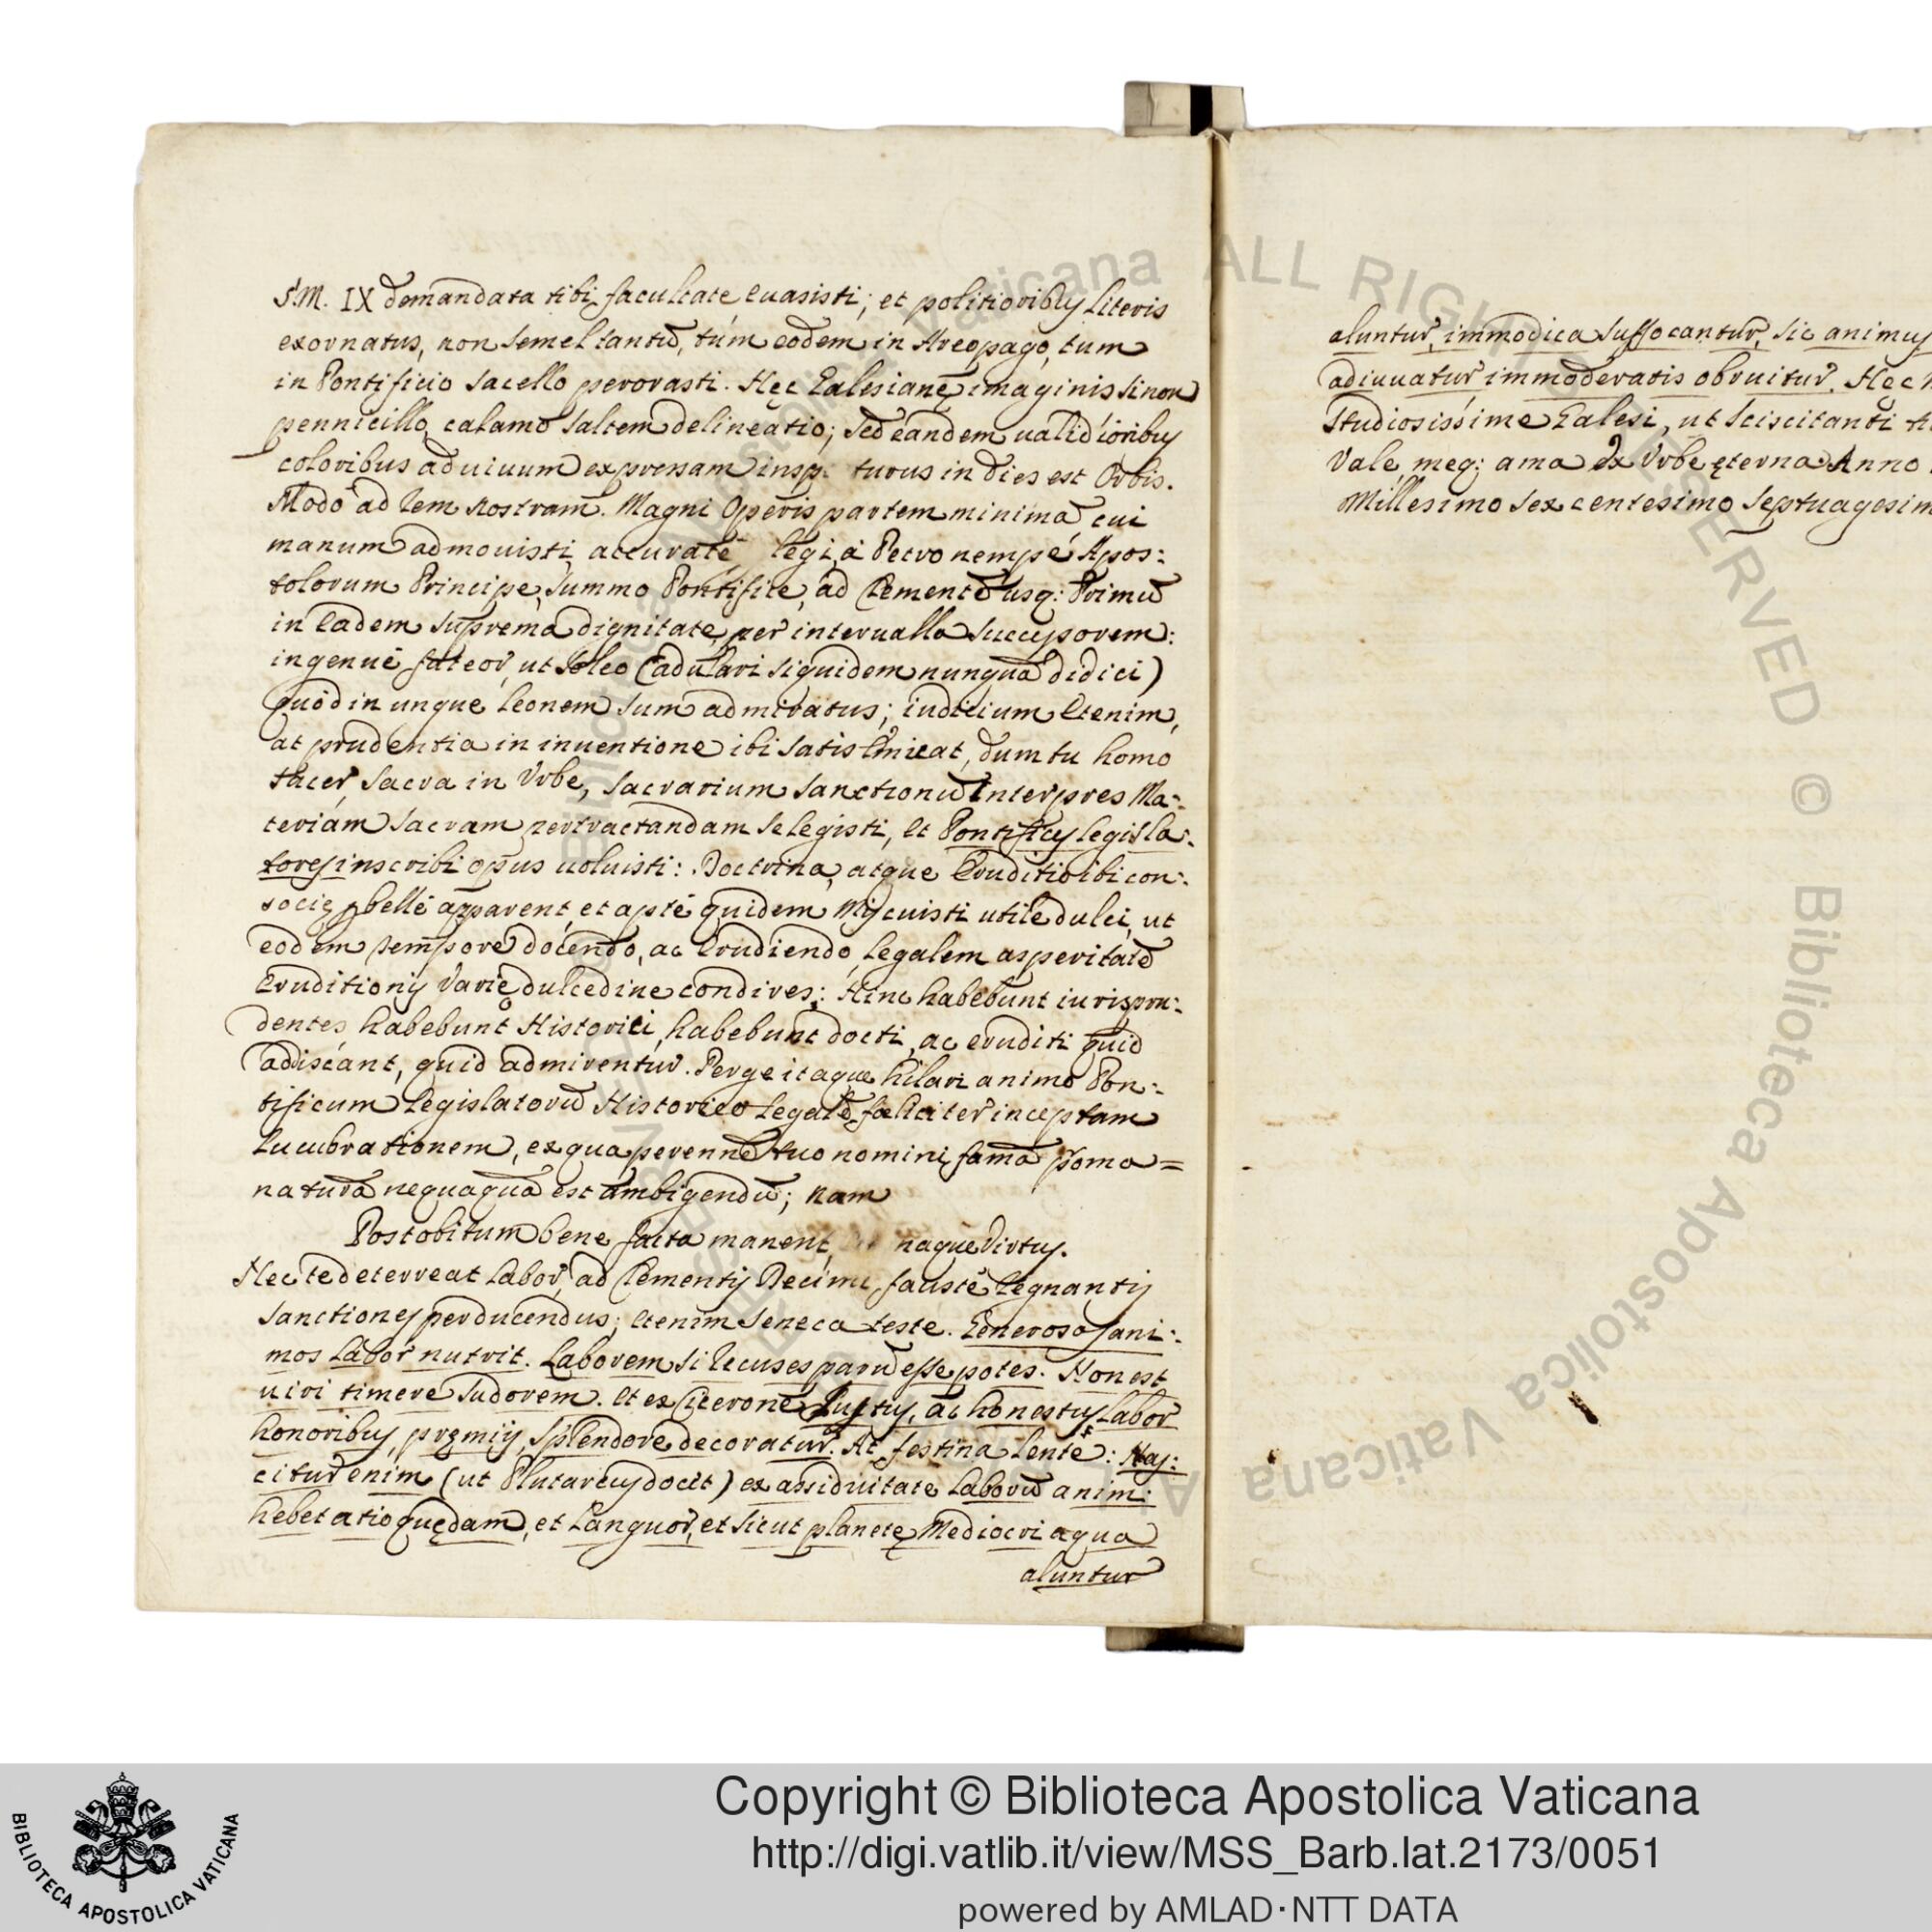 S.M. IX demandata tibi facultate euasisti; et politioribus literis
exornatus, non semel tantũ, tùm eodem in Areopago, tum
in Pontificio sacello perorasti. Hęc Galesianę imaginis si non
pennicillo, calamo saltem delineatio; sed eandem ualidioribus
coloribus ad uiuum expressam insp turus in dies est Orbis.
Modò ad rem nostram. Magni Operis partem minimã, cui
manum admouisti, accuratè legi, à Petro nempè Apos:
tolorum Principe, summo Pontifice, ad Clementẽ usq: Primũ
in eadem suprema dignitate, per interualla successorem:
ingenuè fateor, ut soleo (adulari siquidem nunquã didici)
quòd in ungue leonem sum admiratus; iudicium etenim,
at prudentia in inuentione ibi satis emicat, dum tu homo
sacer, sacra in Vrbe, sacrarium sanctionũ interpres Ma:
teriam sacram pertractandam selegisti, et Pontifices legisla:
tores inscribi opus uoluisti: Doctrina, atque eruditio ibi con:
socię bellè apparent, et aptè quidem Miscuisti utile dulci, ut
eodem tempore docendo, ac erudiendo, legalem asperitatẽ
eruditionis varię dulcedine condires: Hinc habebunt iurispru:
dentes habebunt Historici, habebunt docti, ac eruditi quid
adiscant, quid admirentur. Perge itaque hilari animo Pon:
tificum Legislatorũ Historico legalẽ fæliciter inceptam
lucubrationem, ex qua perennẽ tuo nomini famã proma=
naturã nequaquã est ambigendũ; nam
Post obitum bene facta manent, naque Virtus.
Nec te deterreat labor, ad Clementis Decimi, faustè regnantis
sanctiones perducendus; etenim Seneca teste. Generosos ani:
mos labor nutrit. Laborem si recuses parũ esse potes. Non est
uiri timere sudorem. Et ex Cicerone Iustus, ac honestus labor
honoribus, pręmijs, splendore decoratur. At festina lentè: Nas:
citur enim (ut Plutarcus docet) ex assiduitate laborũ animi
hebetatio quędam, et languor, et sicut planetę Mediocri aqua
aluntur
aluntur, immodica suffocantur, sic animus
adiuuatur immoderatis obruitur. Hęc h
studiosissime Galesi, ut sciscitanti
Vale, meq: ama Ex Vrbe ęterna Anno
Millesimo sex centesimo septuagesim
Copyright © Biblioteca Apostolica Vaticana
http://digi.vatlib.it/view/MSS_Barb.lat.2173/0051
powered by AMLAD·NTT DATA
BIBLIOTECA APOSTOLICA VATICANA